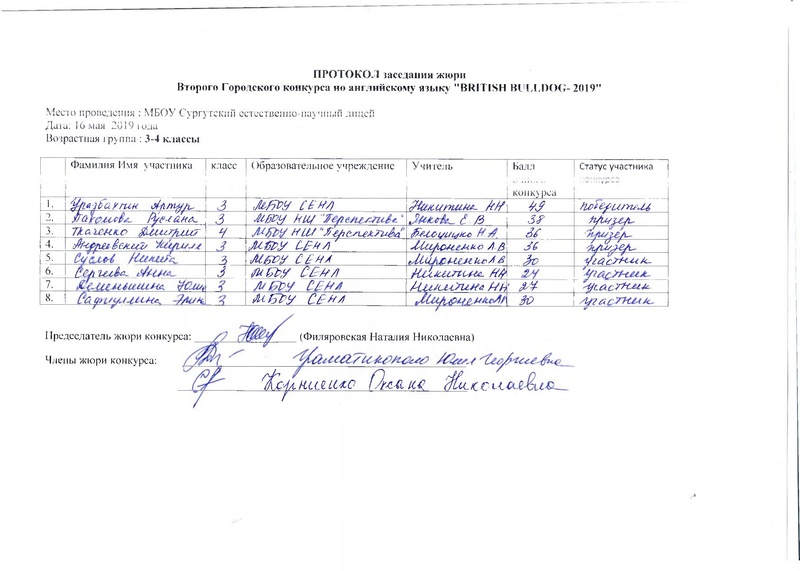 ПРОТОКОЛ заседания жюри
Второго Городского конкурса по английскому языку "BRITISH BULLDOG- 2019"
Место проведения : МБОУ Сургутский естественно-научный лицей
Дата: 16 мая 2019 года
Возрастная группа : 3-4 классы
Фамилия Имя участника класс Образовательное учреждение Учитель Балл Статус участника
конкурса
конкурса
1. Уразбахтин Артур 3 МБОУ СЕНЛ Никитина НН 49 победитель
2. Пахомова Руслана 3 МБОУ НШ "Перспектива" Янкова Е В 38 призёр
3. Ткаченко Дмитрий 4 МБОУ НШ "Перспектива" Белоцицко Н А 36 призёр
4. Андреевский 3 МБОУ СЕНЛ Мироненко ЛВ 36 призёр
5. Суслов Никита 3 МБОУ СЕНЛ Мироненко ЛВ 30 участник
6. Сергеева Анна 3 МБОУ СЕНЛ Никитина НН 24 участник
7. Деменьшина Юлия 3 МБОУ СЕНЛ Никитина НН 27 участник
8. Садриуллина 3 МБОУ СЕНЛ Мироненко 30 участник
Председатель жюри конкурса: (Филяровская Наталия Николаевна)
Члены жюри конкурса: Граматикополо Юлия Георгиевна
Корниенко Оксана Николаевна